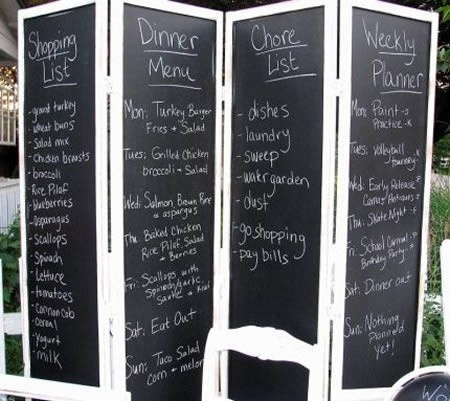 Shopping
List
- ground turkey
- wheat buns
- Salad mix
- chicken breasts
- broccoli
- Rice Pilaf
- blueberries
- asparagus
- scallops
- Spinach
- Lettuce
- tomatoes
- cereal
- yogurt
- milk
Dinner
Menu
Mon: Turkey Burger
Fries + Salad
Tues: Grilled Chicken
broccoli + Salad
Wed: Salmon, Brown Rice
+ asparagus
Thu: Baked Chicken
Rice Pilaf, Salad
+ Berries
Fri: Scallops with
Spinach/garlic
Sat: Eat Out
Sun: Taco Salad
corn + melon
Chore
List
- dishes
- laundry
- sweep
- water garden
- dust
- go shopping
- pay bills
Weekly
Planner
Mon: Paint
Practice
Tues: Volleyball
tourney
Wed: Early Release
Thu: Skate Night
Fri: School Carnival
Birthday Party
Sat: Dinner out
Sun: Nothing
Planned
yet!